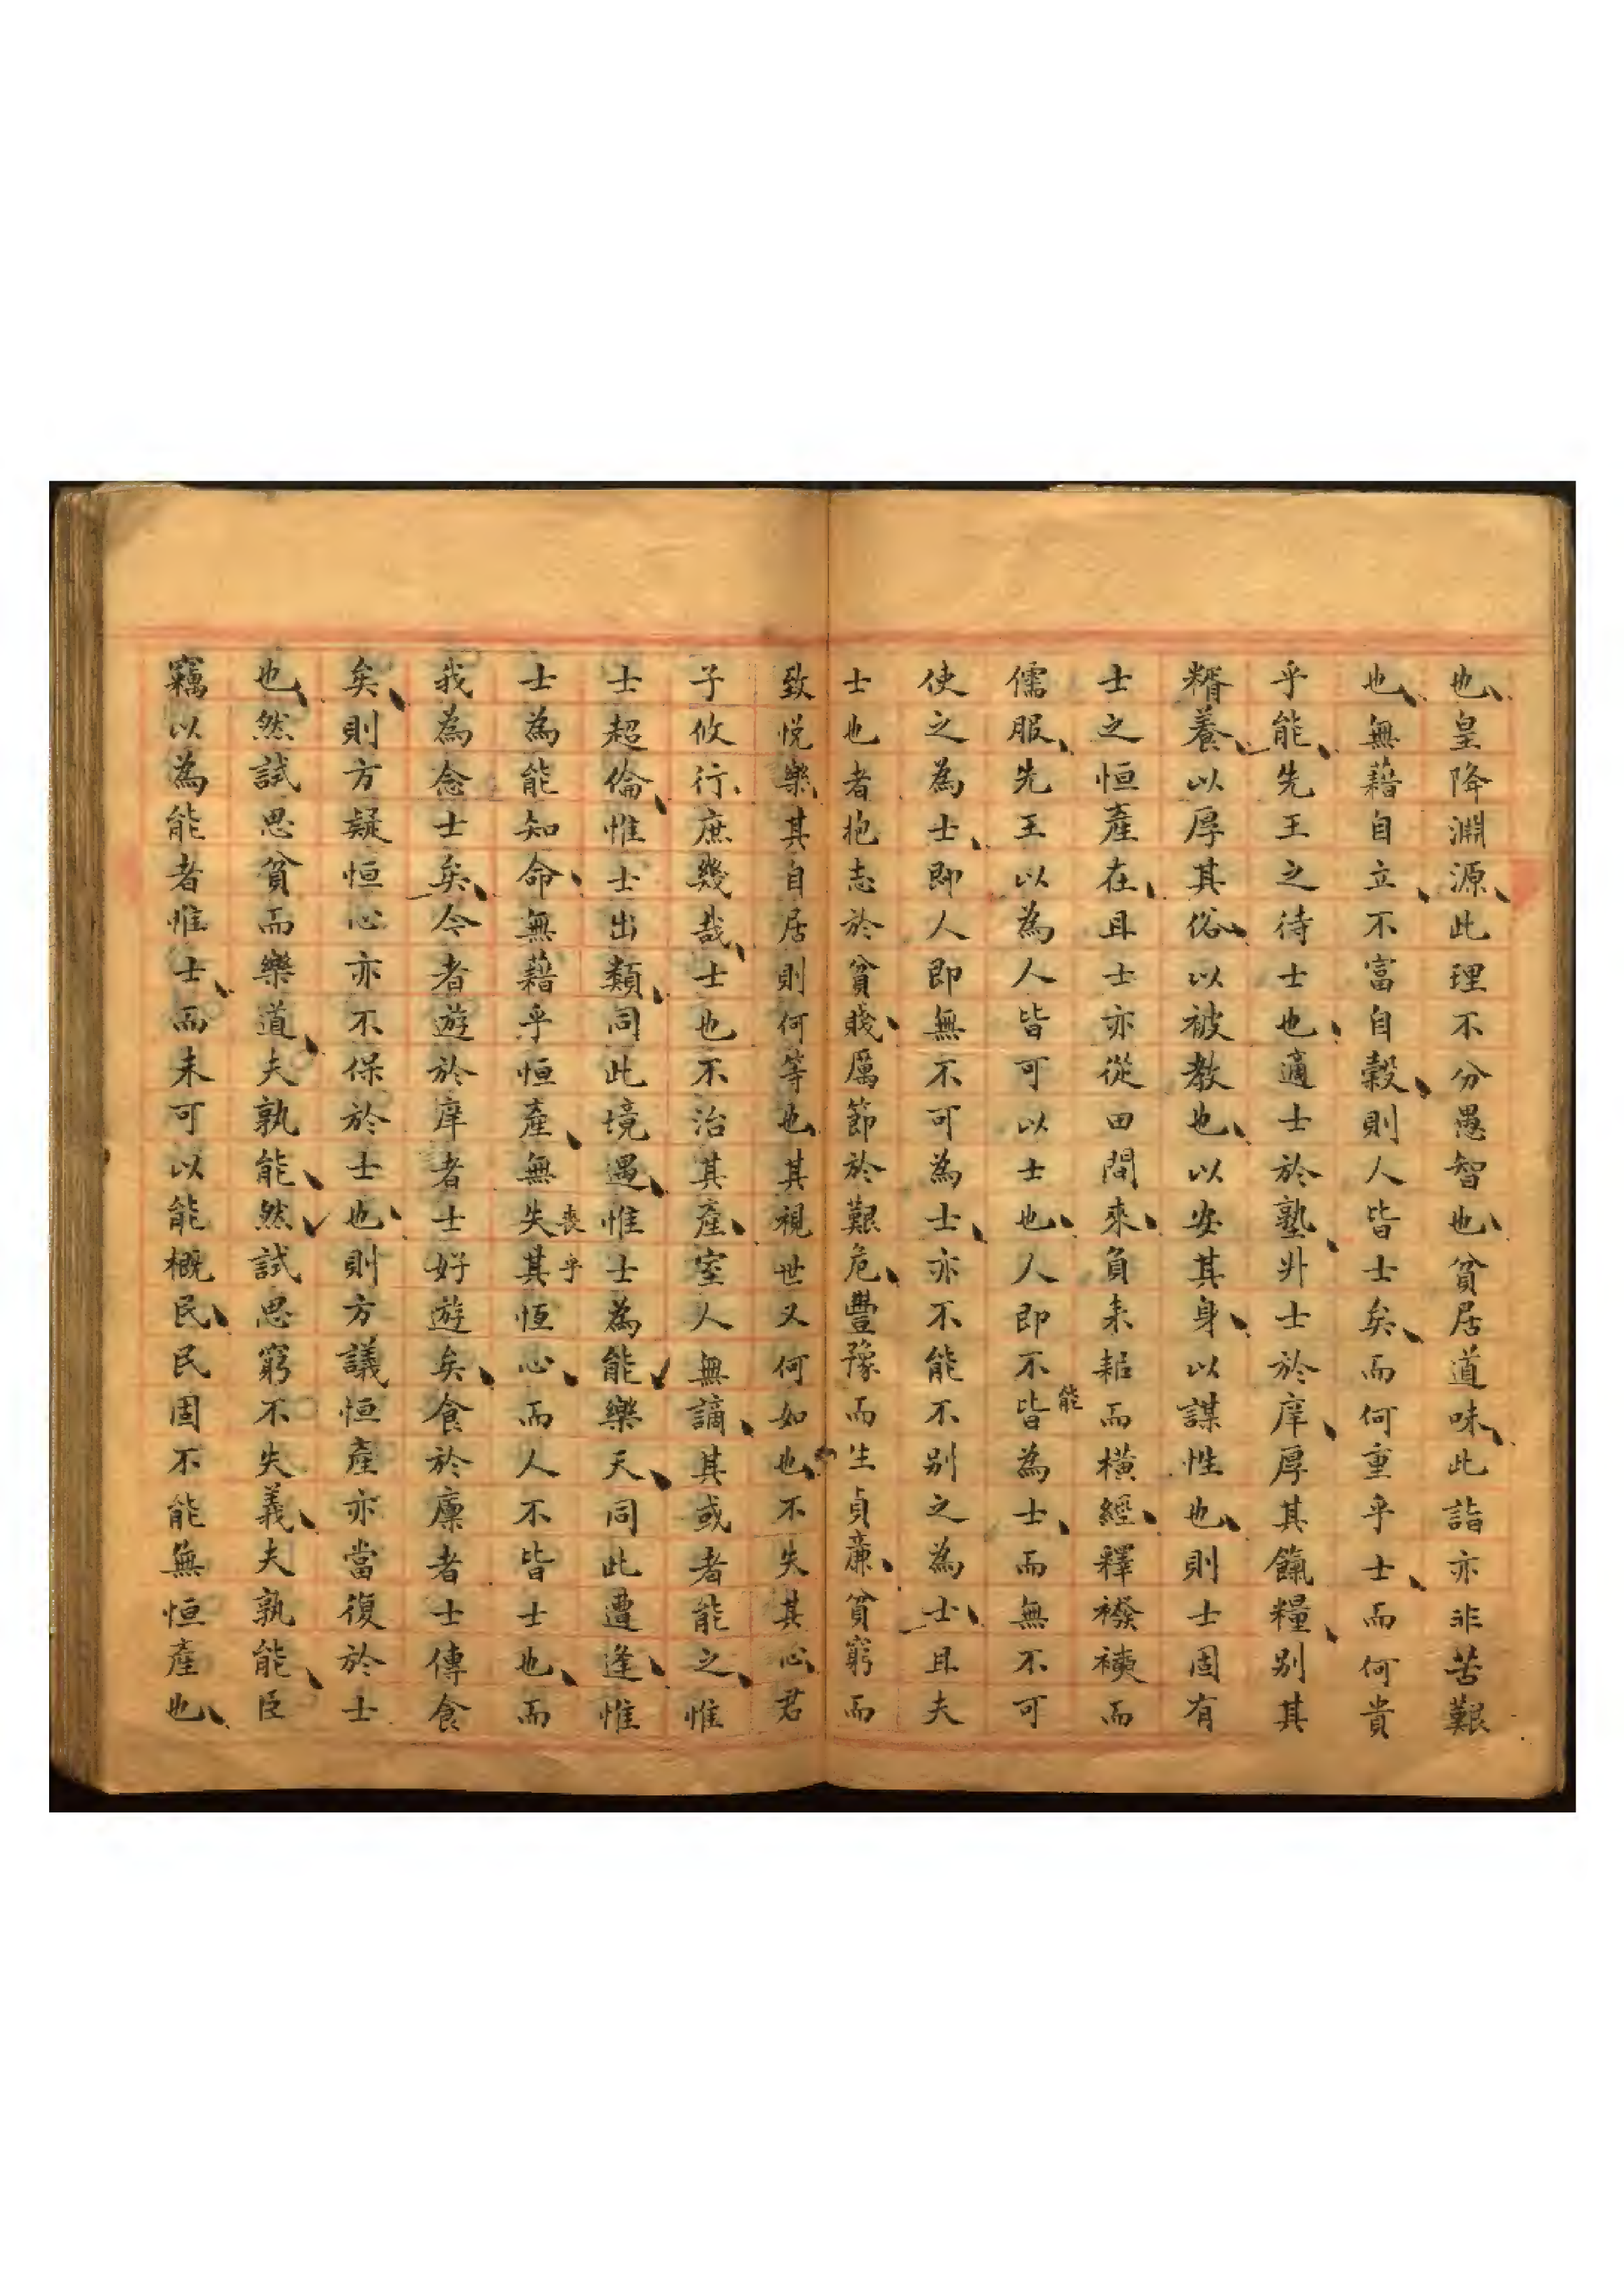 也皇降淵源此理不分愚智也貧居道味此詣亦非苦艱
也無藉自立不富自穀則人皆士矣而何重乎士而何貴
乎能先王之待士也適士於塾升士於庠厚其餼糧別其
糈養以厚其俗以被教也以安其身以謀性也則士固有
士之恒產在且士亦從田間來負耒耜而橫經釋襏襫而
儒服先王以為人皆可以士也人即不皆能為士而無不可
使之為士即人即無不可為士亦不能不別之為士且夫
士也者抱志於貧賤厲節於艱危豐豫而生貞廉貧窮而
致悅樂其自居則何等也其視世又何如也不失其心君
子攸行庶幾哉士也不治其產室人無謫其或者能之惟
士超倫惟士出類同此境遇惟士為能樂天同此遭逢惟
士為能知命無藉乎恒產無失喪其乎恆心而人不皆士也而
我為念士矣今者遊於庠者士好遊矣食於廩者士傳食
矣則方疑恒心亦不保於士也則方議恒產亦當復於士
也然試思貧而樂道夫孰能然試思窮不失義夫孰能臣
竊以為能者惟士而未可以能概民民固不能無恒產也